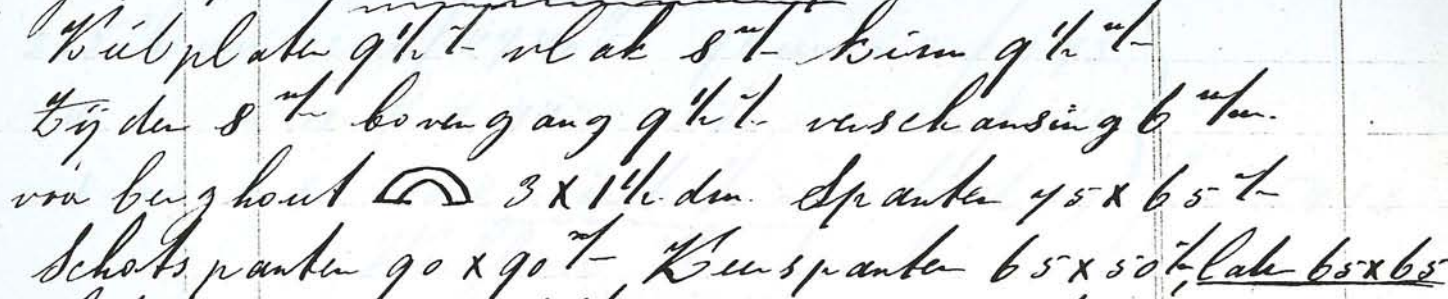 Kielplaten 9 1/2 m/m vlak 8 m/m kim 9 1/2 m/m
Zijden 8 m/m boven gang 9 1/2 m/m verschansing 6 m/m.
voor berghout 3 x 1 1/2 dm. Spanten 75 x 65 m/m
Schotspanten 90 x 90 m/m Keerspanten 65 x 50 m/m, later 65x65